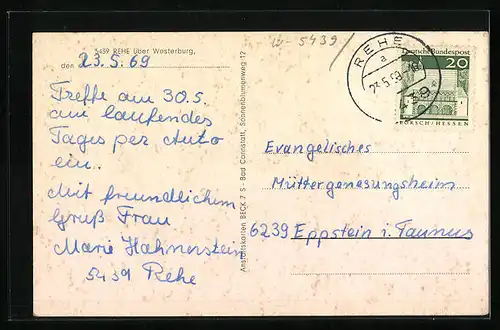 5439 REHE über Westerburg,
den 23.5.69
Treffe am 30.5.
am laufendes
Tages per Auto
ein.
Mit freundlichem
Gruß Frau
Marie Hahnerstein
5439 Rehe
Anstaltskarten BECK 7 S - Bad Cannstatt, Sonnenblumenweg 12
5439
REHE
a
23.5.69
Deutsche Bundespost
20
LORSCH/HESSEN
Evangelisches
Müttergenesungsheim
6239 Eppstein i. Taunus